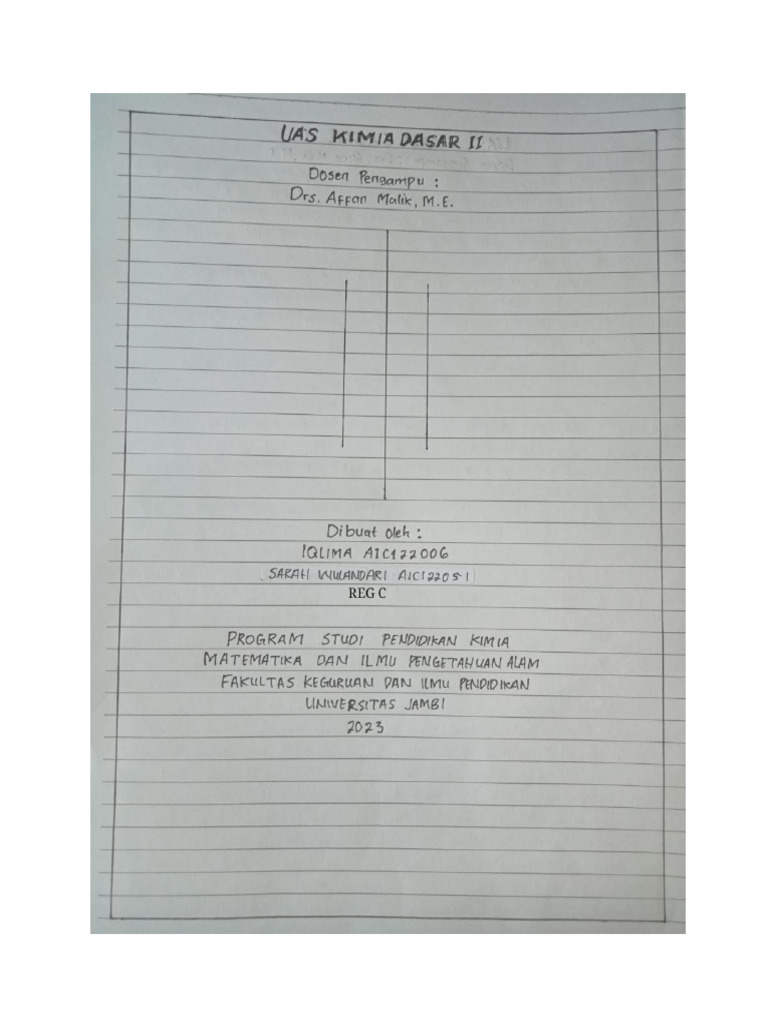 UAS KIMIA DASAR II
Dosen Pengampu :
Drs. Affan Malik, M.E.
Dibuat oleh :
IQLIMA A1C122006
SARAH WULANDARI A1C122051
REG C
PROGRAM STUDI PENDIDIKAN KIMIA
MATEMATIKA DAN ILMU PENGETAHUAN ALAM
FAKULTAS KEGURUAN DAN ILMU PENDIDIKAN
UNIVERSITAS JAMBI
2023